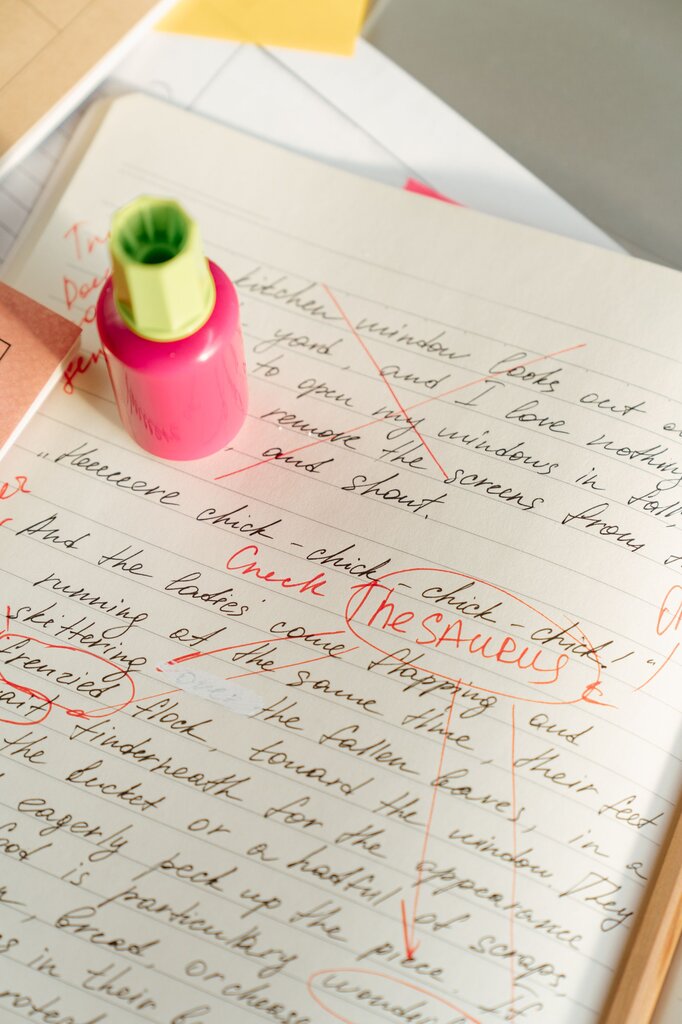 kitchen window looks out
yard, and I love nothing
to open my windows in fall,
remove the screens from
, and shout.
„Heeeeere chick-chick-chick-chick!"
Check TheSAURUS
And the ladies come flapping and
running at the same time, their feet
skittering over the fallen leaves, in a
frenzied flock, toward the window. They
wait underneath for the appearance
the bucket or a hatful of scraps,
eagerly peck up the piece. If
food is particularly wonder
, bread, or cheese
in their